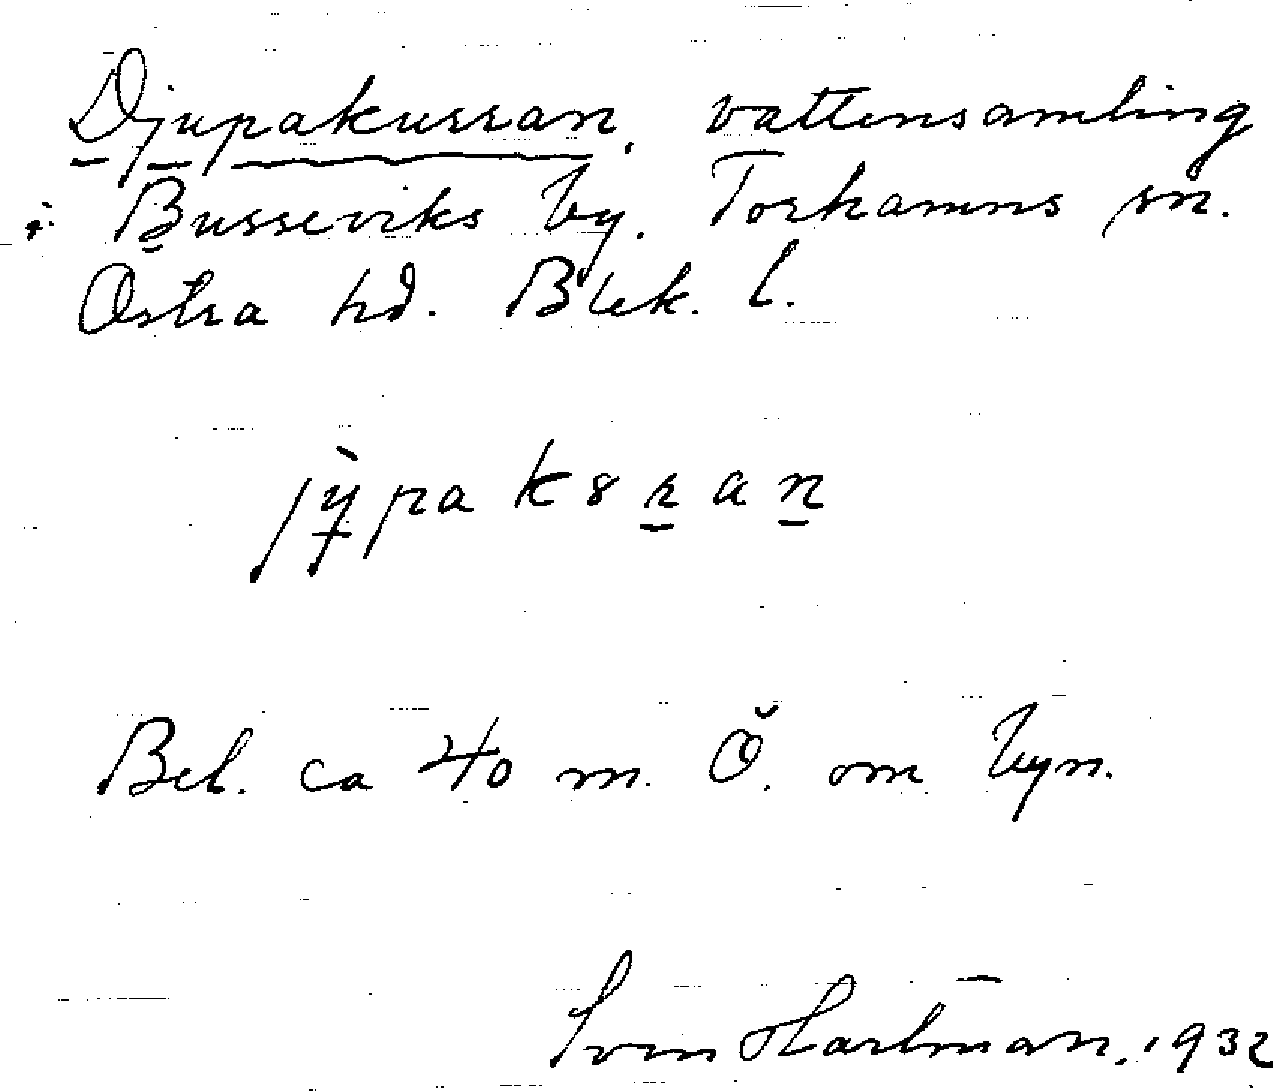 Djupakurran, vattensamling
i Busseviks by. Torhamns sn.
Östra hd. Blek. l.
Bel. ca 40 m. Ö. om byn.
Sven Hartman. 1932